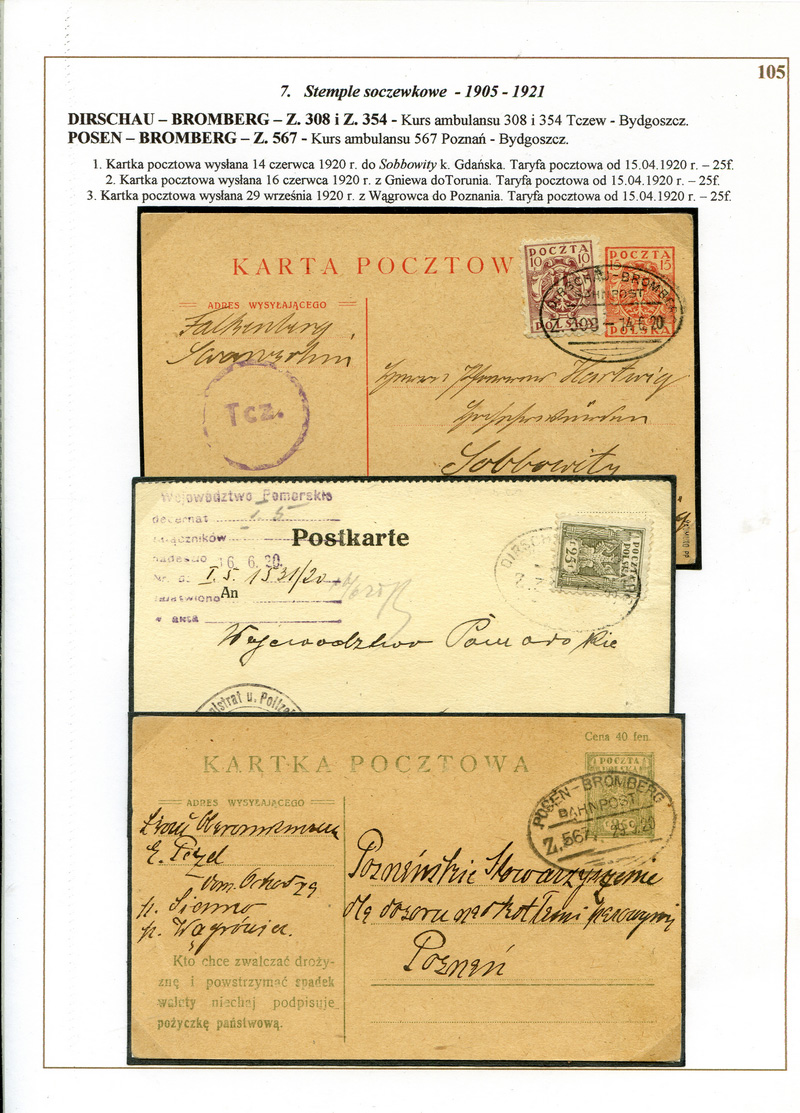 105
7. Stemple soczewkowe - 1905 - 1921
DIRSCHAU – BROMBERG – Z. 308 i Z. 354 - Kurs ambulansu 308 i 354 Tczew - Bydgoszcz.
POSEN – BROMBERG – Z. 567 - Kurs ambulansu 567 Poznań - Bydgoszcz.
1. Kartka pocztowa wysłana 14 czerwca 1920 r. do Sobbowity k. Gdańska. Taryfa pocztowa od 15.04.1920 r. – 25f.
2. Kartka pocztowa wysłana 16 czerwca 1920 r. z Gniewa doTorunia. Taryfa pocztowa od 15.04.1920 r. – 25f.
3. Kartka pocztowa wysłana 29 września 1920 r. z Wągrowca do Poznania. Taryfa pocztowa od 15.04.1920 r. – 25f.
KARTA POCZTOW
POCZTA
10 10
POLSKA
POCZTA
15 15
POLSKA
DIRSCHAU-BROMBERG
BAHNPOST
Z. 308 - 14.6.20
ADRES WYSYŁAJĄCEGO
Falkenberg
Tcz.
Hartwig
Sobbowity
Województwo Pomorskie
decernat I. 5
załączników
nadeszło 16. 6. 20.
I. 5. 1531/20
załatwiono
akta
Postkarte
An
DIRSCH
Z.
POCZTA
POLSKA
25
Wojewodztwo Pomorskie
Magistrat u. Polizei
KARTKA POCZTOWA
Cena 40 fen.
POCZTA
POSEN-BROMBERG
BAHNPOST
Z. 567 29.9.20
ADRES WYSYŁAJĄCEGO
E. Petzel
p. Sienno
p. Wągrowiec.
Poznańskie Stowarzyszenie
dla dozoru nad kotłami parowymi
Poznań
Kto chce zwalczać droży-
znę i powstrzymać spadek
waluty niechaj podpisuje
pożyczkę państwową.